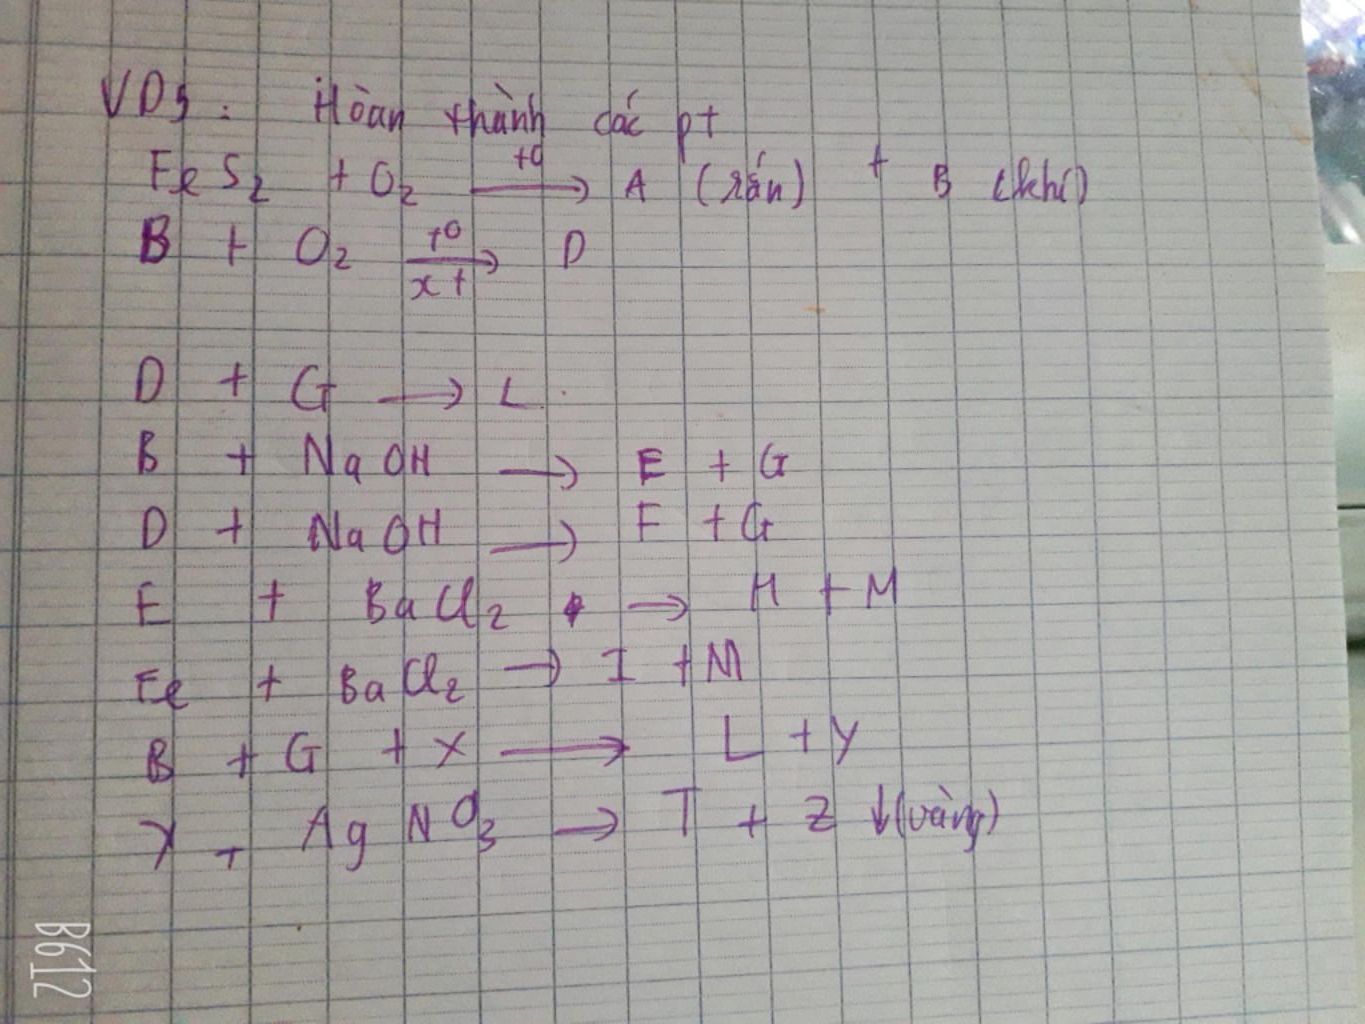 VD5: Hòan thành các pt
FeS2 + O2 →(t0) A (rắn) + B (khí)
B + O2 →(t0, xt) D
D + G → L
B + NaOH → E + G
D + NaOH → F + G
E + BaCl2 → H + M
Fe + BaCl2 → I + M
B + G + X → L + Y
Y + AgNO3 → T + Z ↓(vàng)
B612